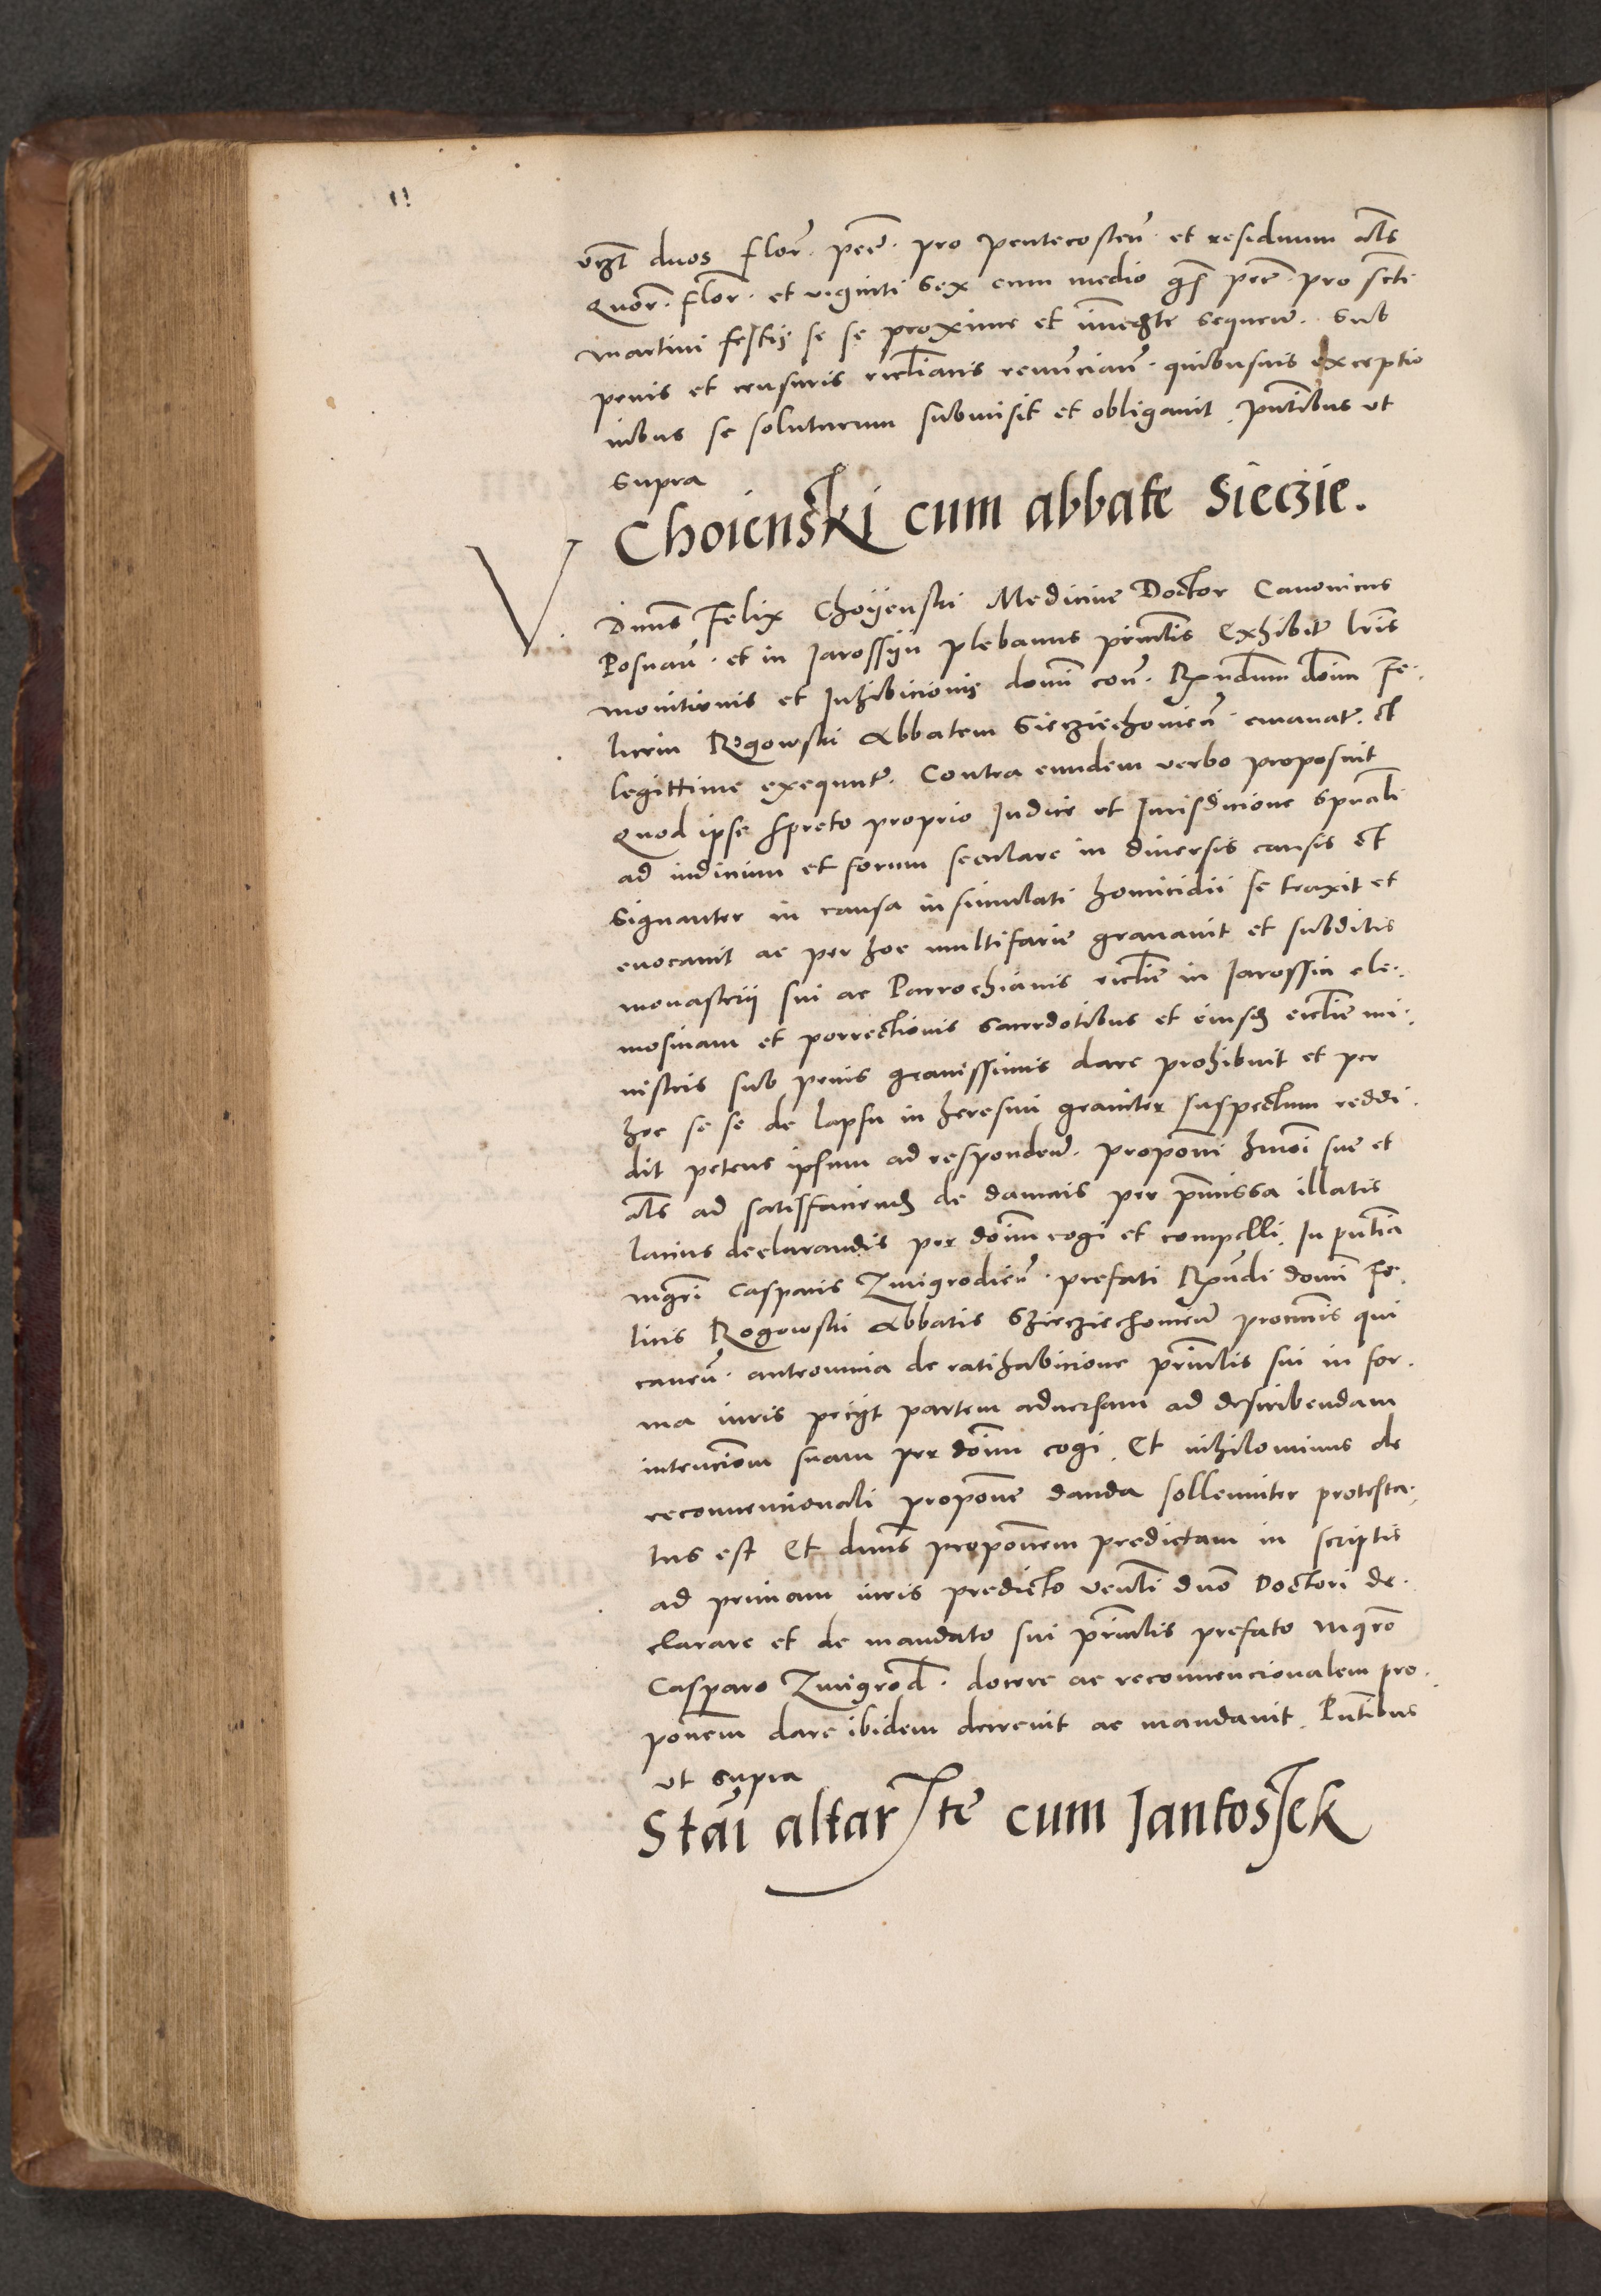 vgt duos flor. pecie. pro pentecosten. et residuum als
Quor. flor. et viginti sex cum medio gs pecie. pro scti
martini festis se se proxime et immegte sequen. Sub
penis et censuris ecclianis renuncian. quibusuis exceptio
nibus se soluturum submisit et obligauit. pntibus vt
supra
Choienski cum abbate Sieczie.
V. Dnus Felix Choyenski Medicine Doctor Canonicus
Posnan. et in Jarossyn plebanus principlis Exhibitis lris
monitionis et Inhibicionis domi con. Rxndum dom Fe.
licem Rogowski Abbatem Siecziechouien. emanat. et
legittime exequut. Contra eundem verbo proposuit
Quod ipse spreto proprio Judice et Jurisdicione spuali
ad iudicium et forum seculare in diuersis causis et
signanter in causa insimulati homicidii se traxit et
euocauit ac per hoc multifarie grauauit et subditis
monasterii sui ac Parrochianis ecclie in Jarossin ele.
mosinam et porrectionis sacerdotibus et eiusd ecclie mi.
nistris sub penis grauissimis dare prohibuit et per
hoc se se de lapsu in heresim grauiter suspectum reddi.
dit petens ipsum ad responden. proponi hmoi sue et
als ad satisfaciend de damnis per pmissa illatis
lacius declarandis per dom cogi et compelli. In pntia
mgri Casparis Zmigrodien. prefati Rxndi domi Fe.
licis Rogowski Abbatis Sziecziechouien procuris qui
cauen. anteomnia de ratihabicione principlis sui in for.
ma iuris peciit partem aduersam ad describendam
intenciom suam per dom cogi. Et nihilominus de
reconuencionali propone danda sollenniter protesta.
tus est Et dnus proponem predictam in scriptis
ad primam iuris predicto venli dno Doctori de.
clarare et de mandato sui principlis prefato mgro
Casparo Zmigrod. docere ac reconuencionalem pro.
ponem dare ibidem decreuit ac mandauit. Pntibus
vt supra
Stai altariste cum Jantossek